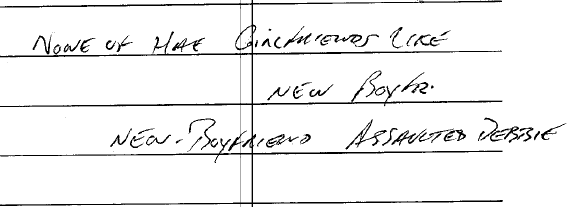 NONE OF HAE GIRLFRIENDS LIKE
NEW BOYFR.
NEW-BOYFRIEND ASSAULTED DEBBIE